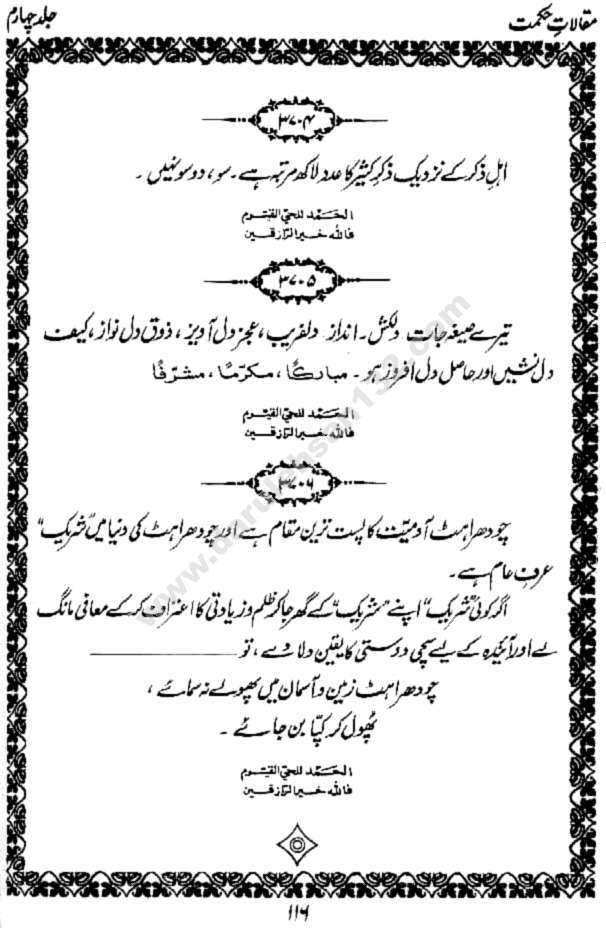 مقالاتِ حکمت
جلد چہارم
۳۷۰۴
اہلِ ذکر کے نزدیک ذکرِ کثیر کا عدد لاکھ مرتبہ ہے ۔ سو ، دو سو نہیں ۔
الحَمد للحیّ القیّوم
فالله خیر الرّازقین
۳۷۰۵
تیرے صیغہ جات دلکش ۔ انداز دلفریب ، عجز دل آویز ، ذوق دل نواز ، کیف
دل نشیں اور حاصل دل افروز ہو ۔ مبارکًا ، مکرّمًا ، مشرّفًا
الحَمد للحیّ القیّوم
فالله خیر الرّازقین
۳۷۰۶
چودھراہٹ آدمیّت کا پست ترین مقام ہے اور چودھراہٹ کی دنیا میں "شریک"
عرفِ عام ہے ۔
اگر کوئی "شریک" اپنے "شریک" کے گھر جا کر ظلم و زیادتی کا اعتراف کر کے معافی مانگ
لے اور آئندہ کے لیے سچی دوستی کا یقین دلا دے ، تو ـــــــــــــــــ
چودھراہٹ زمین و آسمان میں پھولے نہ سمائے ،
پُھول کر کپّا بن جائے ۔
الحَمد للحیّ القیّوم
فالله خیر الرّازقین
۱۱۶
www.darulehsan132.com